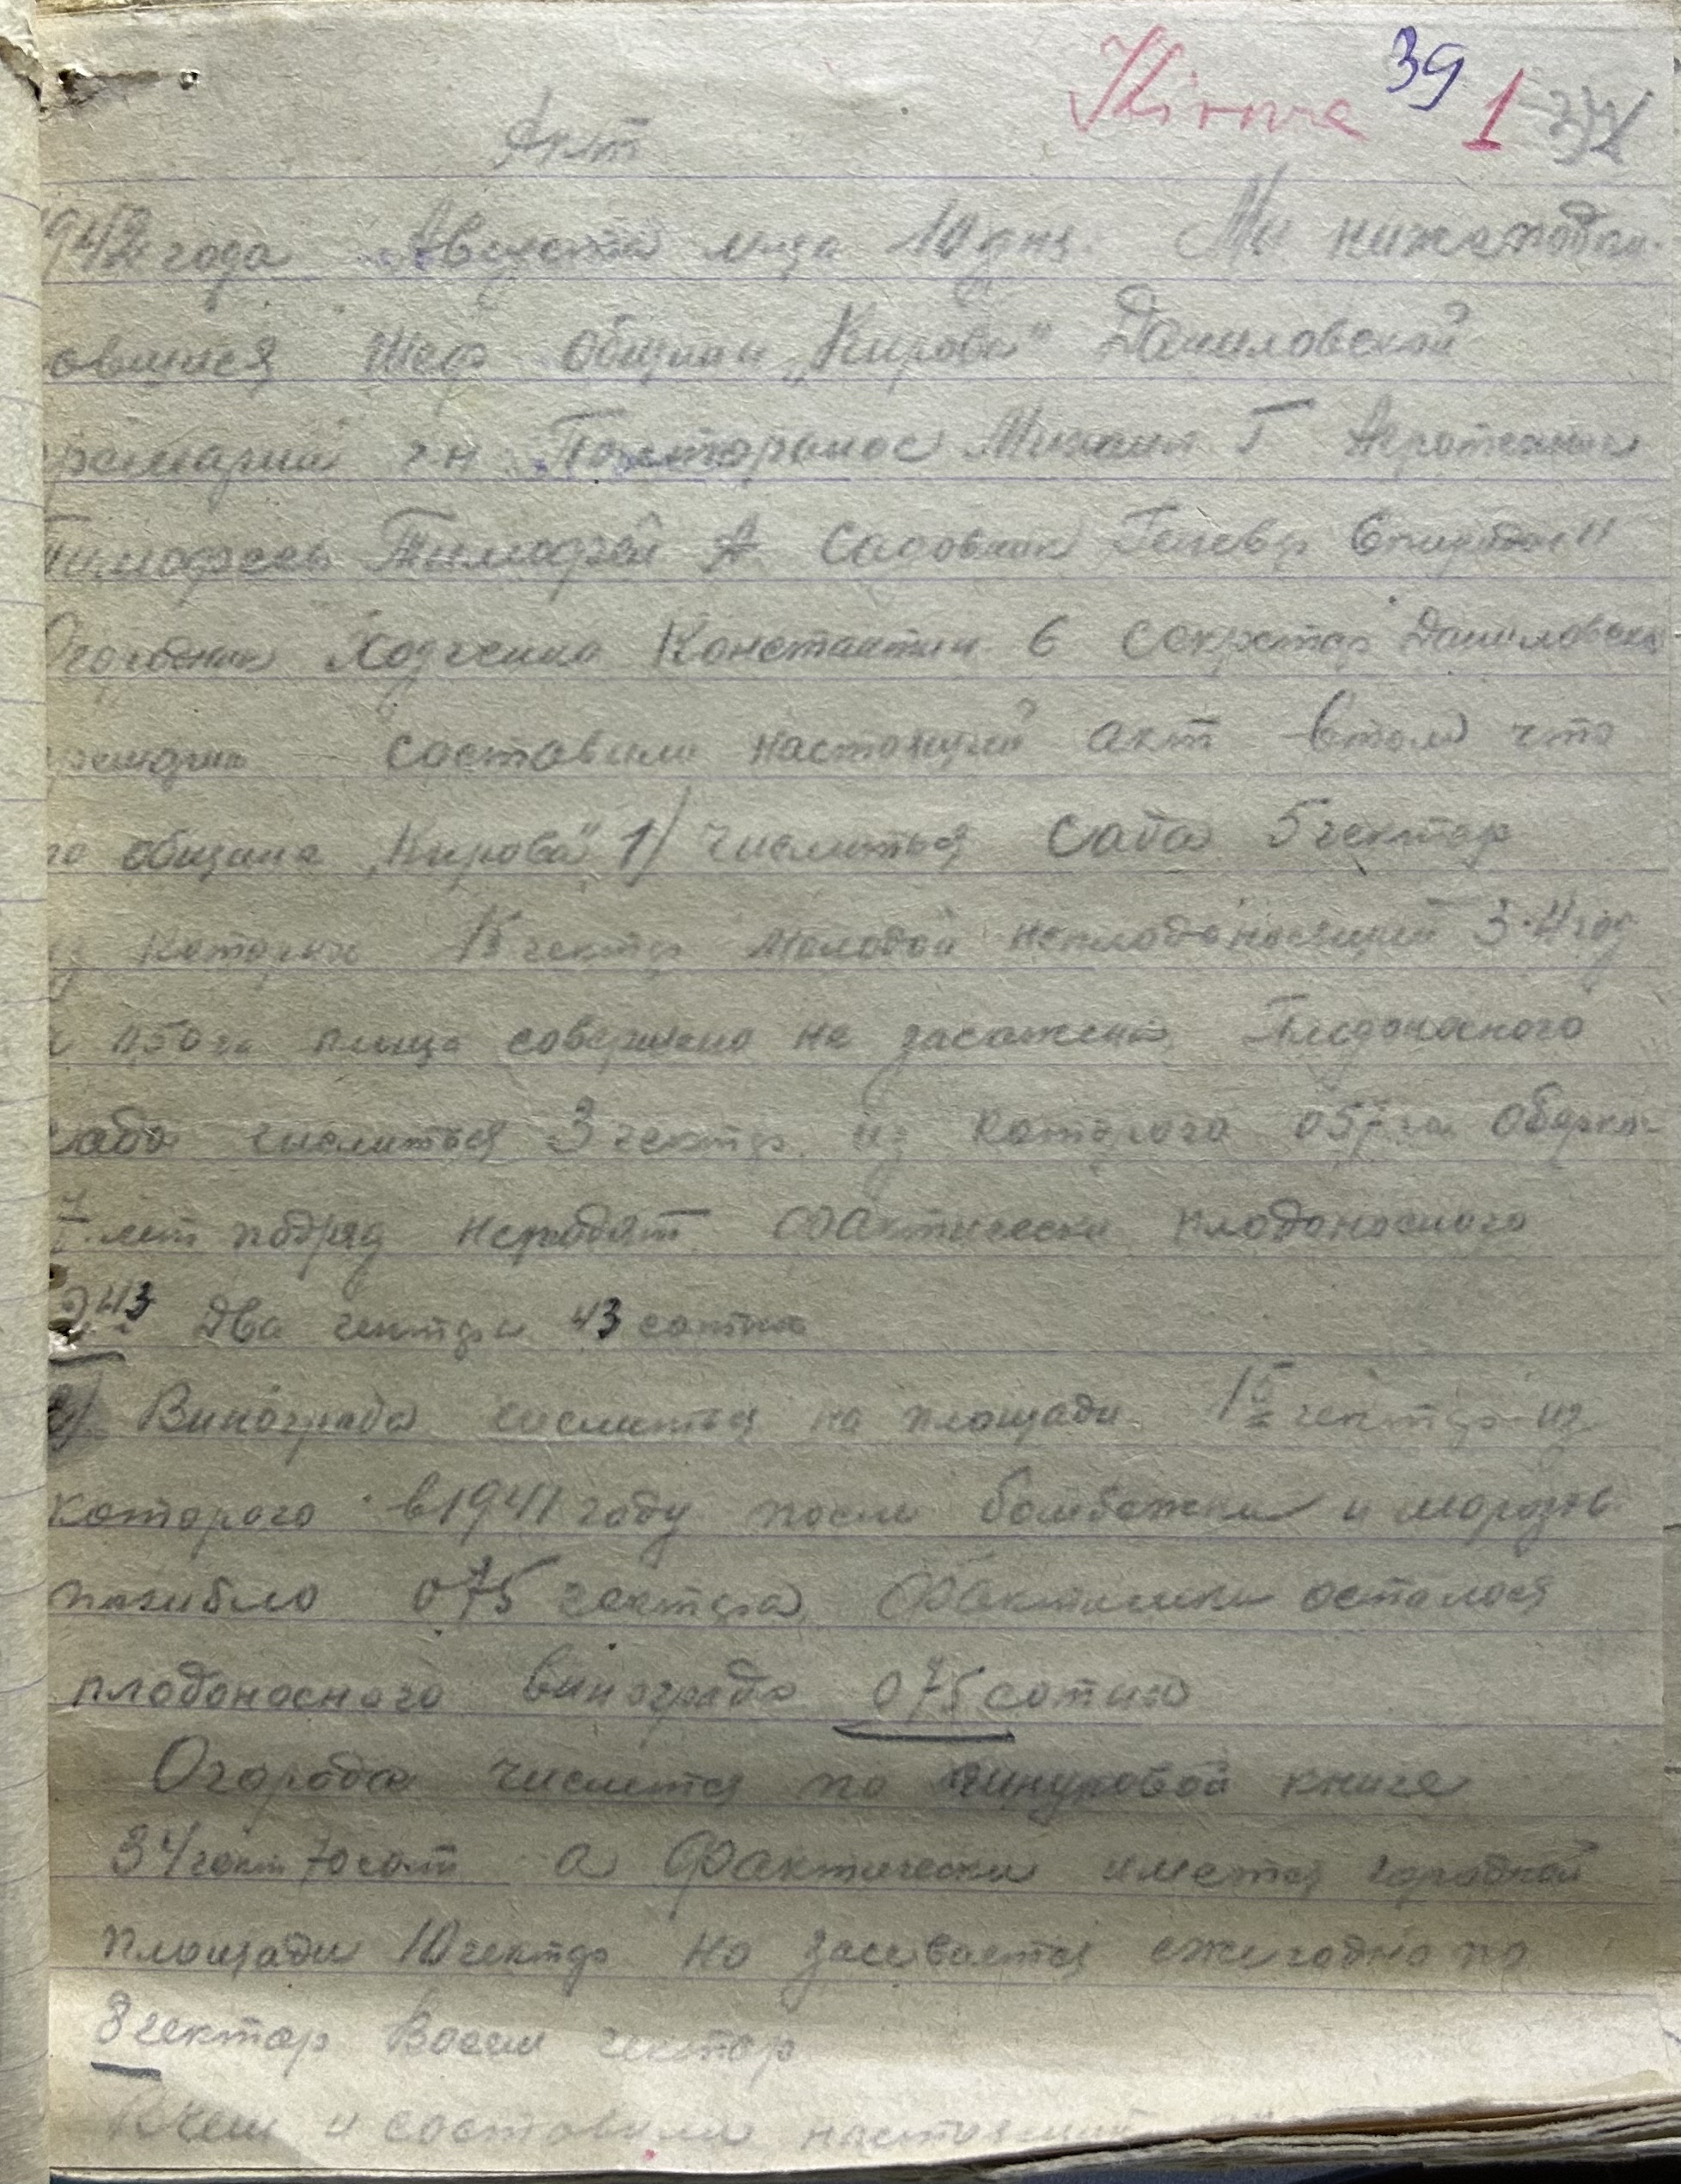 Kirova 39 1
Акт
1942 года Августа м-ца 10 дня. Мы нижеподпи-
овшиеся Шеф общины „Кирова" Даниловской
г-н Михаил Г
Тимофеев Тимофей А Садовник
Огородник Ходченко Константин С Секретар Даниловской
составили настоящий акт втом что
по община „Кирова" 1/ числиться сада 5 гектар
из которых 1 5 гектар молодой неплодоносящий 3-4 год
и 0,50 га площа совершено не засажена. Плодоносного
сада числиться 3 гектар из которого 057 га
7 лет подряд неродят. Фактически плодоносного
2,43 Два гектара 43 сотых
2/ Винограда числиться на площади 1 5 гектар из
которого в 1941 году после бомбежки и морозов
погибло 0 75 гектара. Фактически осталося
плодоносного винограда 0 75 сотых
Огорода числится по шнуровой книге
34 гект 70 сот а фактически имется городной
площади 10 гектар но засевается ежегодно по
8 гектар Восем гектар
В чем и составили настоящий